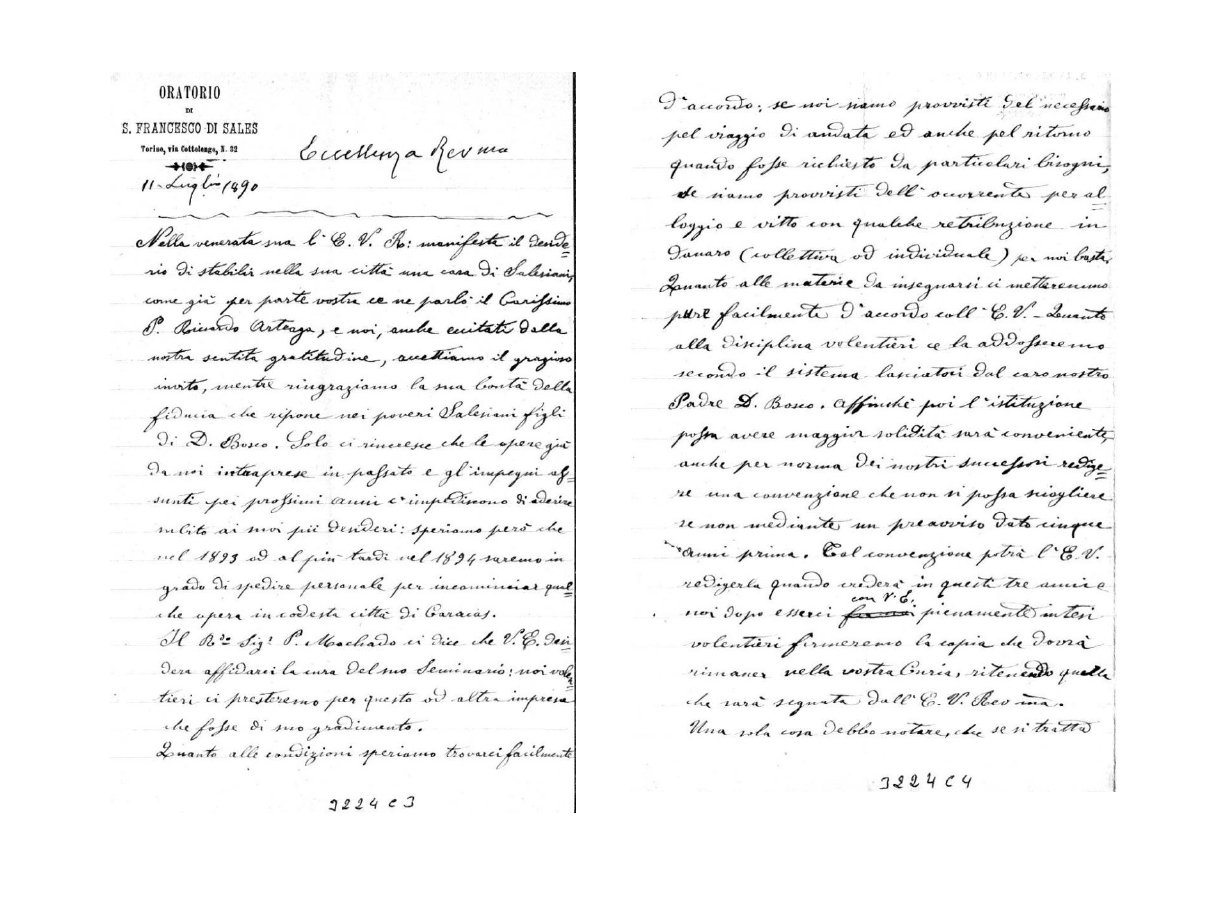 ORATORIO
DI
S. FRANCESCO DI SALES
Torino, via Cottolengo, N. 32
Eccellenza Revma
11 - Luglio 1890
Nella venerata sua l'E. V. R: manifesta il deside=
rio di stabilir nella sua città una casa di Salesiani,
come già per parte vostra ce ne parlò il Carissimo
P. Ricardo Arteaga, e noi, anche eccitati dalla
nostra sentita gratitudine, accettiamo il grazioso
invito, mentre ringraziamo la sua bontà della
fiducia che ripone nei poveri Salesiani figli
di D. Bosco. Solo ci rincresce che le opere già
da noi intraprese in passato e gl'impegni as=
sunti pei prossimi anni c'impediscono di aderire
subito ai suoi pii desideri: speriamo però che
nel 1893 od al più tardi nel 1894 saremo in
grado di spedire personale per incominciar qual=
che opera in codesta città di Caracas.
Il Rdo Sigr P. Machado ci dice che V. E. desi
dera affidarci la cura del suo Seminario; noi volen=
tieri ci presteremo per questo od altra impresa
che fosse di suo gradimento.
Quanto alle condizioni speriamo trovarci facilmente
3224 C 3
d'accordo; se noi siamo provvisti del necessario
pel viaggio di andata ed anche pel ritorno
quando fosse richiesto da particolari bisogni,
se siamo provvisti dell'occorrente per al=
loggio e vitto con qualche retribuzione in
danaro (collettiva od individuale) per noi basta.
Quanto alle materie da insegnarsi ci metteremmo
pure facilmente d'accordo coll'E. V. - Quanto
alla disciplina volentieri ce la addosseremo
secondo il sistema lasciatoci dal caro nostro
Padre D. Bosco. Affinchè poi l'istituzione
possa avere maggior solidità sarà conveniente,
anche per norma dei nostri successori redige=
re una convenzione che non si possa sciogliere
se non mediante un preavviso dato cinque
anni prima. Tal convenzione potrà l'E. V.
redigerla quando crederà in questi tre anni e
con V. E.
noi dopo esserci pienamente intesi
volentieri firmeremo la copia che dovrà
rimaner nella vostra Curia, ritenendo quella
che sarà segnata dall'E. V. Revma.
Una sola cosa debbo notare, che se si tratta
3224 C 4